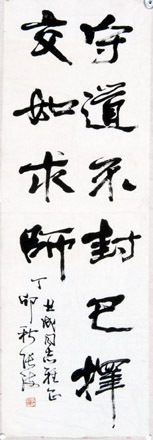 守道不封己擇
交如求師
同志雅正
丁卯秋